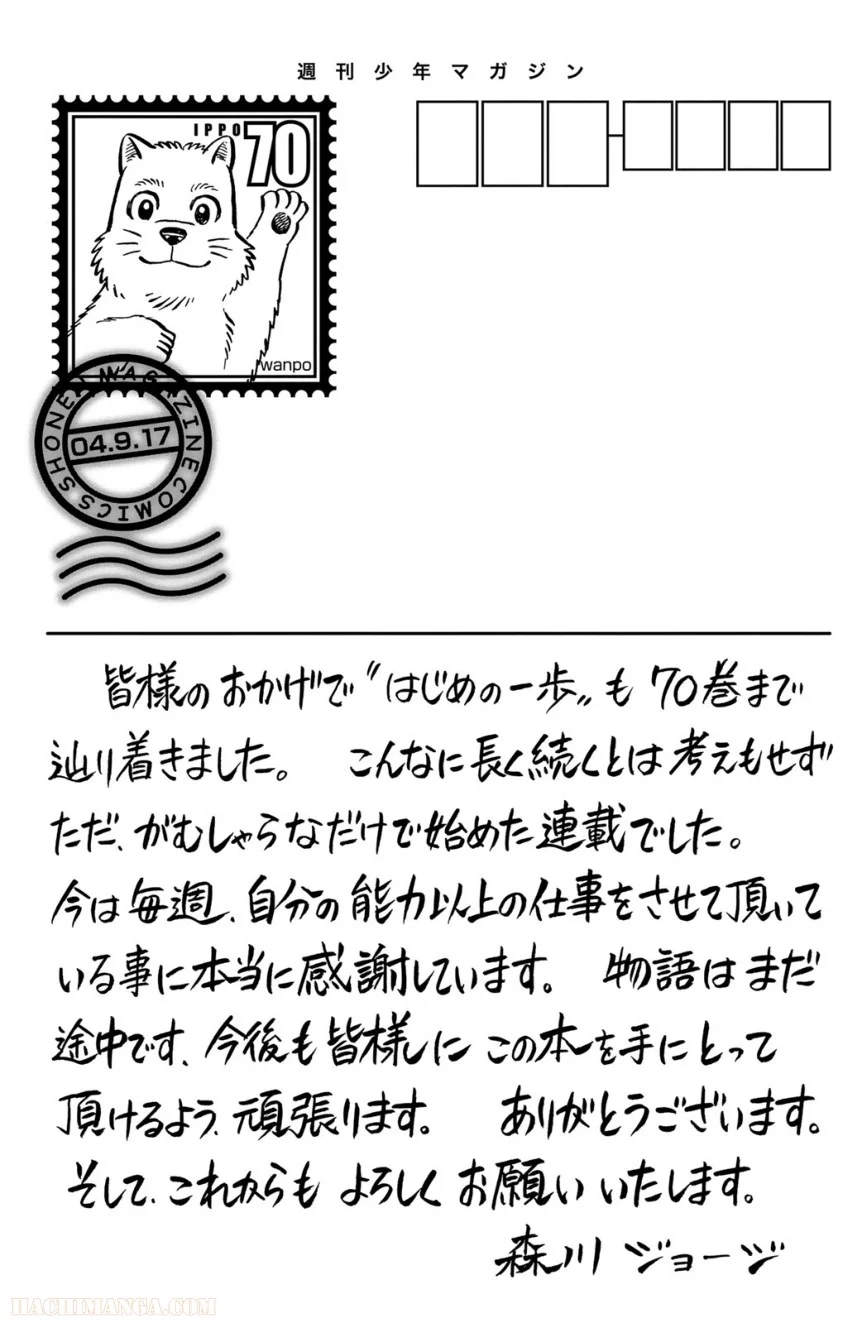 週刊少年マガジン
IPPO 70
wanpo
SHONEN MAGAZINE COMICS
04.9.17
皆様のおかげで〝はじめの一歩〟も 70巻まで
辿り着きました。 こんなに長く続くとは考えもせず
ただ、がむしゃらなだけで始めた連載でした。
今は毎週、自分の能力以上の仕事をさせて頂いて
いる事に本当に感謝しています。 物語はまだ
途中です、今後も皆様に この本を手にとって
頂けるよう、頑張ります。 ありがとうございます。
そして、これからも よろしく お願い いたします。
森川 ジョージ
HACHIMANGA.COM